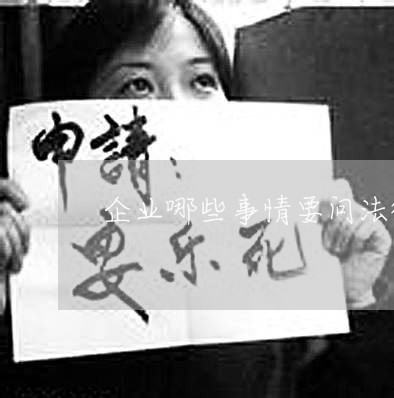 申請：
企业哪些事情要问法
安乐死